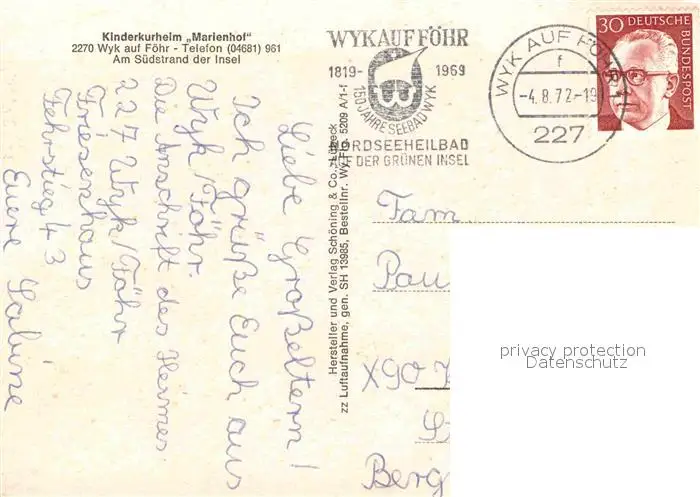 Kinderkurheim „Marienhof"
2270 Wyk auf Föhr - Telefon (04681) 961
Am Südstrand der Insel
Liebe Großeltern!
Ich grüße Euch aus
Wyk/Föhr.
Die Anschrift des Heimes
227 Wyk/Föhr
Friesenhaus
Fehrstieg 43
Euere Sabine
Hersteller und Verlag Schöning & Co., Lübeck
zz Luftaufnahme, gen. SH 13985, Bestellnr. Wy.F.b. 5209 A/1-f
WYK AUF FÖHR
1819- 1969
150 JAHRE SEEBAD WYK
NORDSEEHEILBAD
AUF DER GRÜNEN INSEL
WYK AUF FÖHR 1
f
-4.8.72-19
227
30 DEUTSCHE
BUNDESPOST
Fam
Pau
X90
Berg
privacy protection
Datenschutz